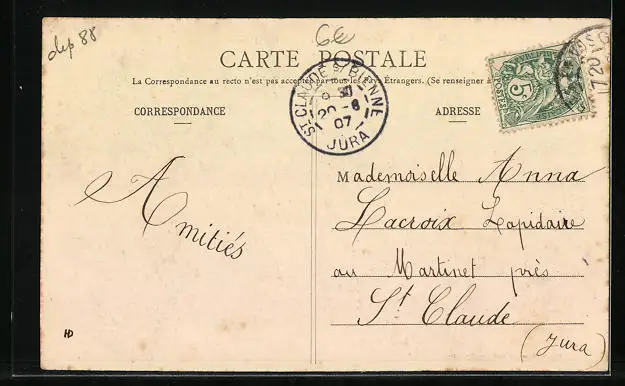 dep 88
6€
CARTE POSTALE
La Correspondance au recto n'est pas acceptée par tous les Pays Étrangers. (Se renseigner à
CORRESPONDANCE
ADRESSE
ST-CLAUDE-S-BIENNE
20-6
07
JURA
5
POSTES
Amitiés
Mademoiselle Anna
Lacroix Lapidaire
au Martinet près
St Claude
(Jura)
HD